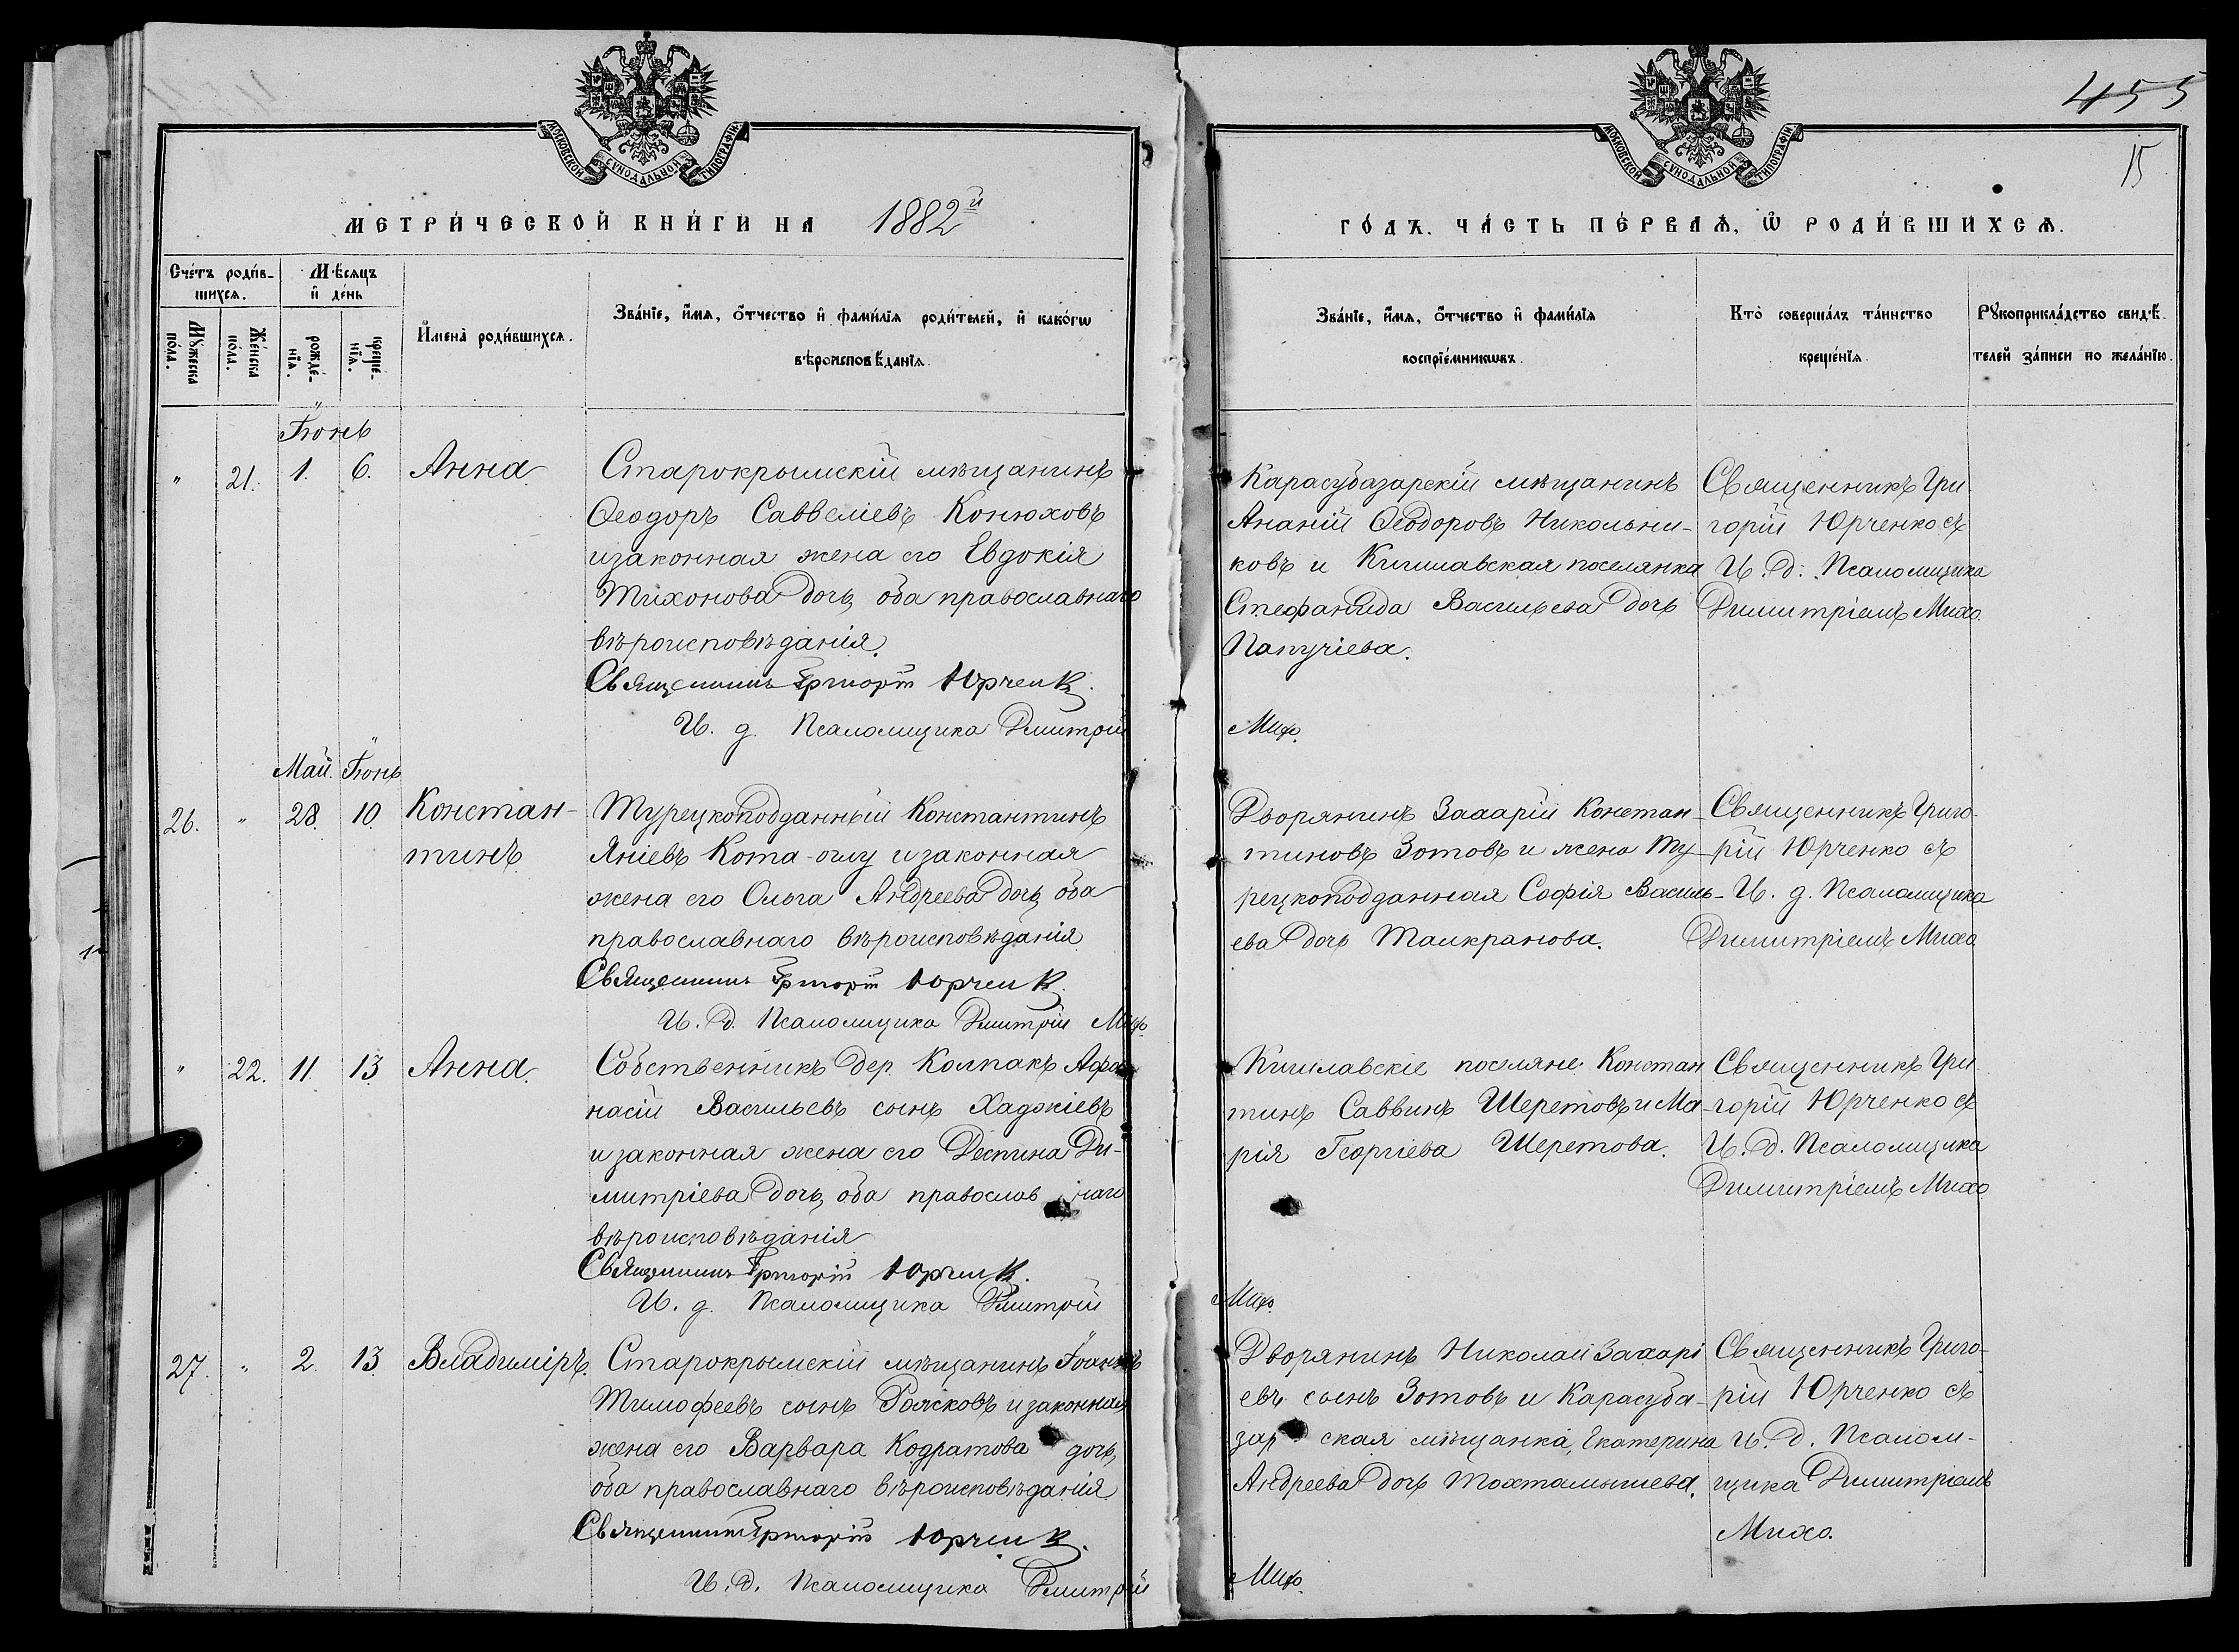 МОСКОВСКОЙ СѴНОДАЛЬНОЙ ТИПОГРАФІИ
МОСКОВСКОЙ СѴНОДАЛЬНОЙ ТИПОГРАФІИ
455
15
МЕТРИ́ЧЕСКОЙ КНИ́ГИ НА 1882й
ГО́ДЪ. ЧА́СТЬ ПЕ́РВАѦ, Ѡ РОДИ́ВШИХСѦ.
Сче́тъ роди́в-
шихсѧ.
Мѣ́сѧцъ
и҆ де́нь
Мꙋ́жеска
по́ла.
Же́нска
по́ла.
рожде́-
нїѧ.
креще́-
нїѧ.
И҆мена̀ роди́вшихсѧ.
Зва́нїе, и҆́мѧ, ѻ҆́тчество и҆ фами́лїѧ роди́телей, и҆ како́гѡ
вѣроисповѣ́данїѧ.
Зва́нїе, и҆́мѧ, ѻ҆́тчество и҆ фами́лїѧ
воспрїе́мникѡвъ.
Кто̀ соверша́лъ та́инство
креще́нїѧ.
Рꙋкоприкла́дство свидѣ́-
телей за́писи по жела́нїю.
Іюнь
" 21. 1. 6. Анна
Старокрымскій мѣщанинъ
Ѳеодоръ Саввеліевъ Конюховъ
и законная жена его Евдокія
Тихонова дочь, оба православнаго
вѣроисповѣданія.
Священникъ Григорій Юрченко.
И. д. Псаломщика Димитрій
Михо.
Карасубазарскій мѣщанинъ
Ананій Ѳеодоровъ Никольни-
ковъ и Кишлавская поселянка
Стефанида Васильева дочь
Папучіева.
Священникъ Гри-
горій Юрченко съ
И. д. Псаломщика
Димитріемъ Михо.
Май. Іюнь
26. " 28. 10. Констан-
тинъ.
Турецкоподданный Константинъ
Яніевъ Кота-оглу и законная
жена его Ольга Андреева дочь, оба
православнаго вѣроисповѣданія
Священникъ Григорій Юрченко.
И. д. Псаломщика Димитрій Михо
Дворянинъ Захарій Констан-
тиновъ Зотовъ и жена Ту-
рецкоподданная Софія Василь-
ева дочь
Священникъ Григо-
рій Юрченко съ
И. д. Псаломщика
Димитріемъ Михо
" 22. 11. 13. Анна.
Собственникъ дер. Колпакъ Афа-
насій Васильевъ сынъ Хаджіевъ
и законная жена его Деспина Ди-
митріева дочь, оба православнаго
вѣроисповѣданія
Священникъ Григорій Юрченко.
И. д. Псаломщика Димитрій
Михо.
Кишлавскіе поселяне Констан
тинъ Саввинъ Шеретовъ и Ма-
рія Георгіева Шеретова.
Священникъ Гри
горій Юрченко съ
И. д. Псаломщика
Димитріемъ Михо
27. " 2. 13. Владиміръ.
Старокрымскій мѣщанинъ Іоаннъ
Тимофеевъ сынъ Рожковъ и законная
жена его Варвара Кодратова дочь,
оба православнаго вѣроисповѣданія.
Священникъ Григорій Юрченко.
И. д. Псаломщика Димитрій
Михо.
Дворянинъ Николай Захарі
евъ сынъ Зотовъ и Карасуба-
зарская мѣщанка, Екатерина
Андреева дочь Тохтамышева.
Священникъ Григо-
рій Юрченко съ
И. д. Псалом-
щика Димитріемъ
Михо.